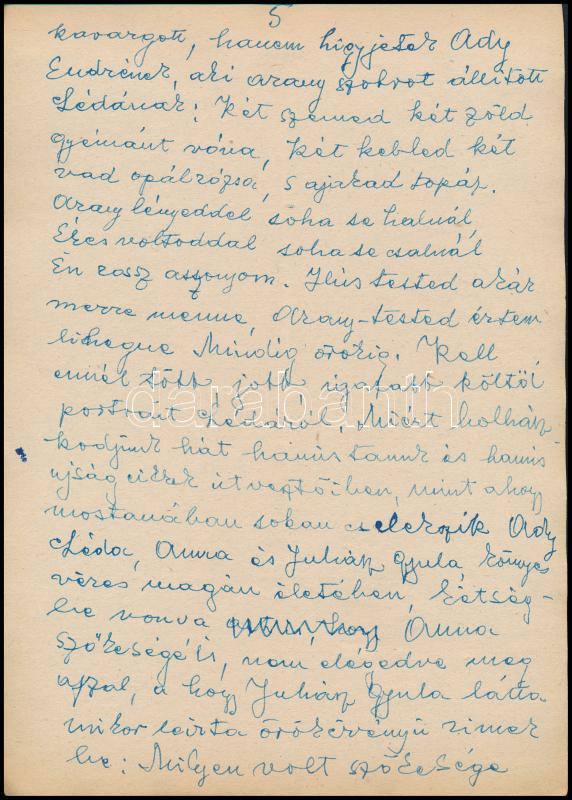 5
kavargott, hanem higyjetek Ady
Endrének, aki arany szobrot állított
Lédának: Két szemed két zöld
gyémánt vóna, Két kebled két
vad opálrózsa, s ajakad topáz.
Arany lényeddel soha se halnál,
Érces voltoddal soha se csalnál
Én rossz asszonyom. Hús tested akár
merre menne, Arany-tested értem
lihegne Mindig örökig. Kell
ennél több, jobb, igazabb költői
portrait Lédáról! Miért bolház-
kodjunk hát hamis tanuk és hamis
ujság cikkek útvesztőiben, mint ahogy
mostanában sokan cselekszik Ady
Léda, Anna és Juhász Gyula könnyes
véres magán életében, kétség-
be vonva Anna
szőkeségét is, nem elégedve meg
azzal, a hogy Juhász Gyula látta
mikor leírta örökérvényű rimek
be: Milyen volt szőkesége
darabanth